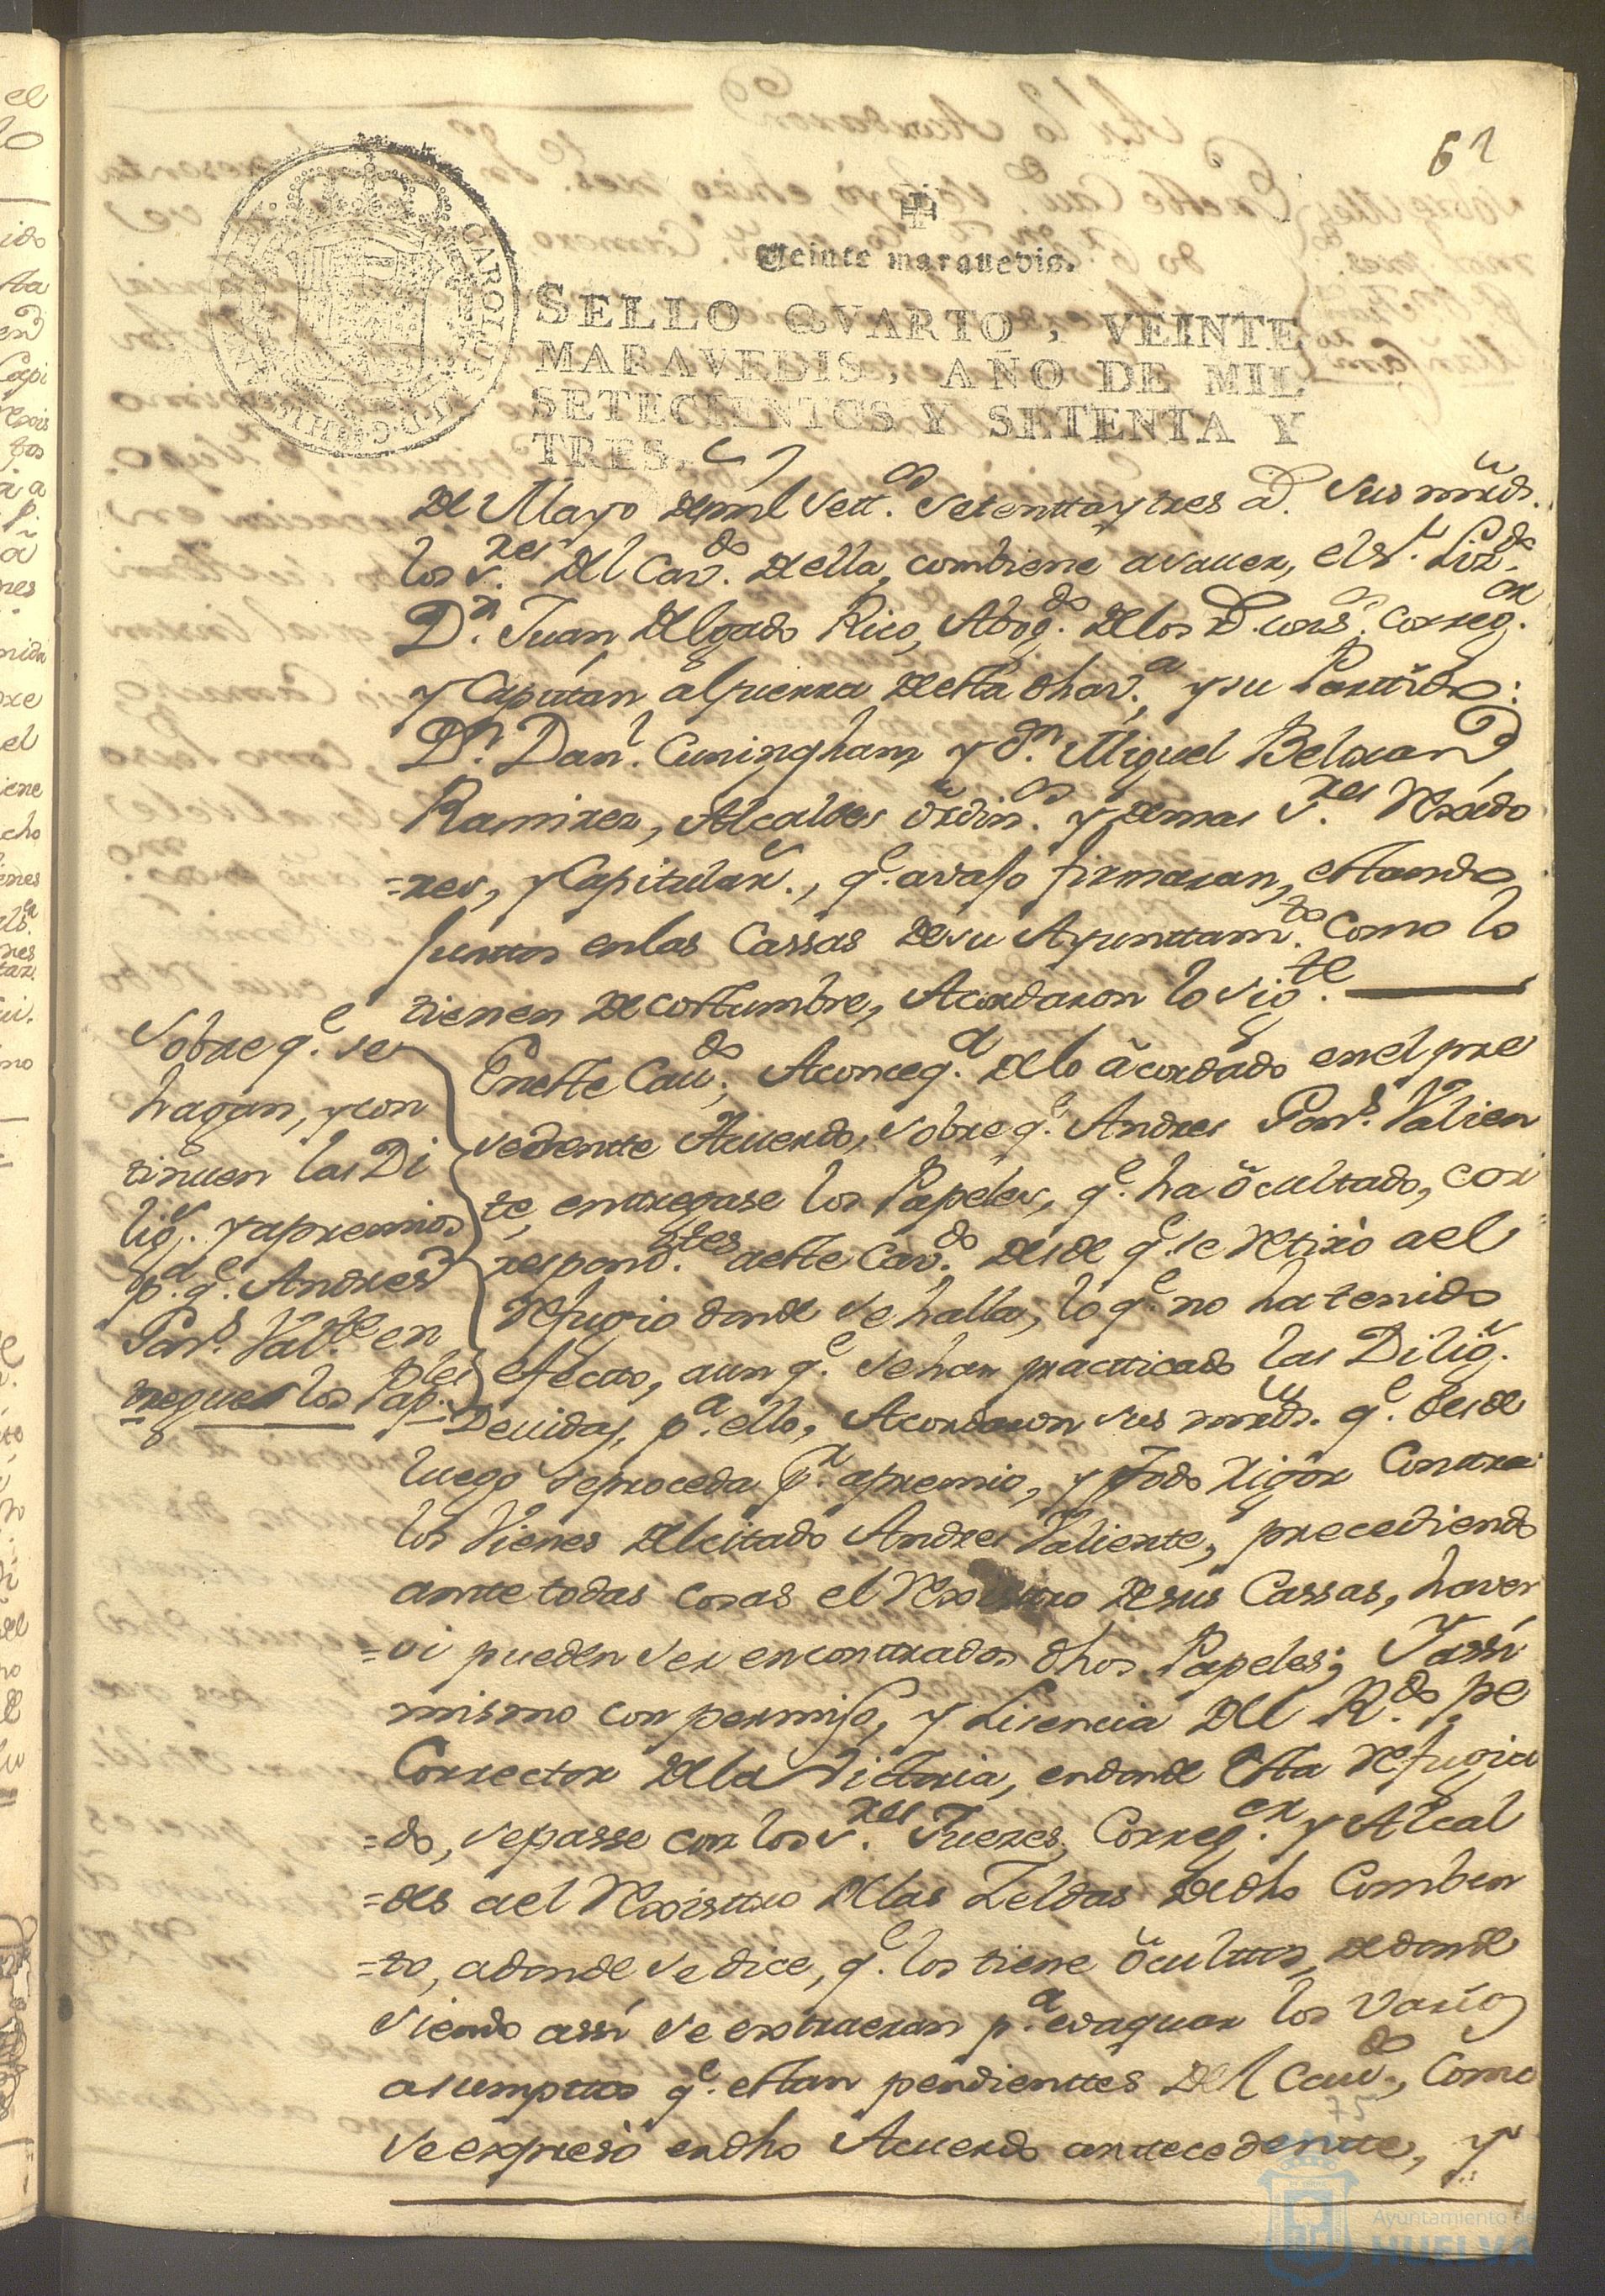 62
Veinte maravedis.
SELLO QVARTO, VEINTE
MARAVEDIS, AÑO DE MIL
SETECIENTOS Y SETENTA Y
TRES.
de Mayo de mil Sett.os Setentta y tres a.s Sus mrds.
los S.res del Cav.do de ella, combiene a saver, el S.r Liz.do
D.n Juan Delgado Rico, Abog.do de los R. cons.s Correg.or
y Capitán a guerra de esta dha v.a y su Partido:
D.n Dan.l Cuningham y D.n Miguel Beltran
Ramirez, Alcaldes ordin.os y demas S.res Rexido
=res, y Capitular.s, q.e avajo firmaran, estando
Junttos en las Cassas de su Ayunttam.to como lo
tienen de costumbre, Acordaron lo sig.te
Sobre q.e se
hagan, y con
tinuen las Di
lig.s y apremios
p.a q.e Andres
Pon.s Val.te en
tregue los Pap.les
En este Cav.do, A conceq.a de lo acordado en el pre
sedentte Acuerdo, sobre q.e Andres Pon.s Valien
te, entregase los Papeles, q.e ha ocultado, cor
respond.tes a este Cav.do desde q.e se retiró a el
refugio donde se halla, lo q.e no ha tenido
efecto, aun q.e se han practticado las Dilig.s
Devidas, p.a ello, Acordaron sus mrds. q.e desde
luego se proceda p.r apremio, y todo rigor Contra
los Vienes del citado Andres Valiente, precediendo
antte todas cosas el Rexisttro de sus Cassas, haver
=si pueden ser encontrados dhos Papeles; Y assí
mismo con permiso, y Lisencia del R.do P.e
Corrector de la Victoria, en donde esta refugia
=do, se passe con los S.res Juezes, Correg.or y Alcal
=des a el Rexisttro de las Zeldas de dho Comben
=to, a donde se dice, q.e los tiene ocultos, de donde
siendo assí se extraeran p.a evaquar los varios
asumpttos q.e estan pendienttes del Cav.do, como
se expresó en dho Acuerdo anttecedentte, y
75
Ayuntamiento de
HUELVA